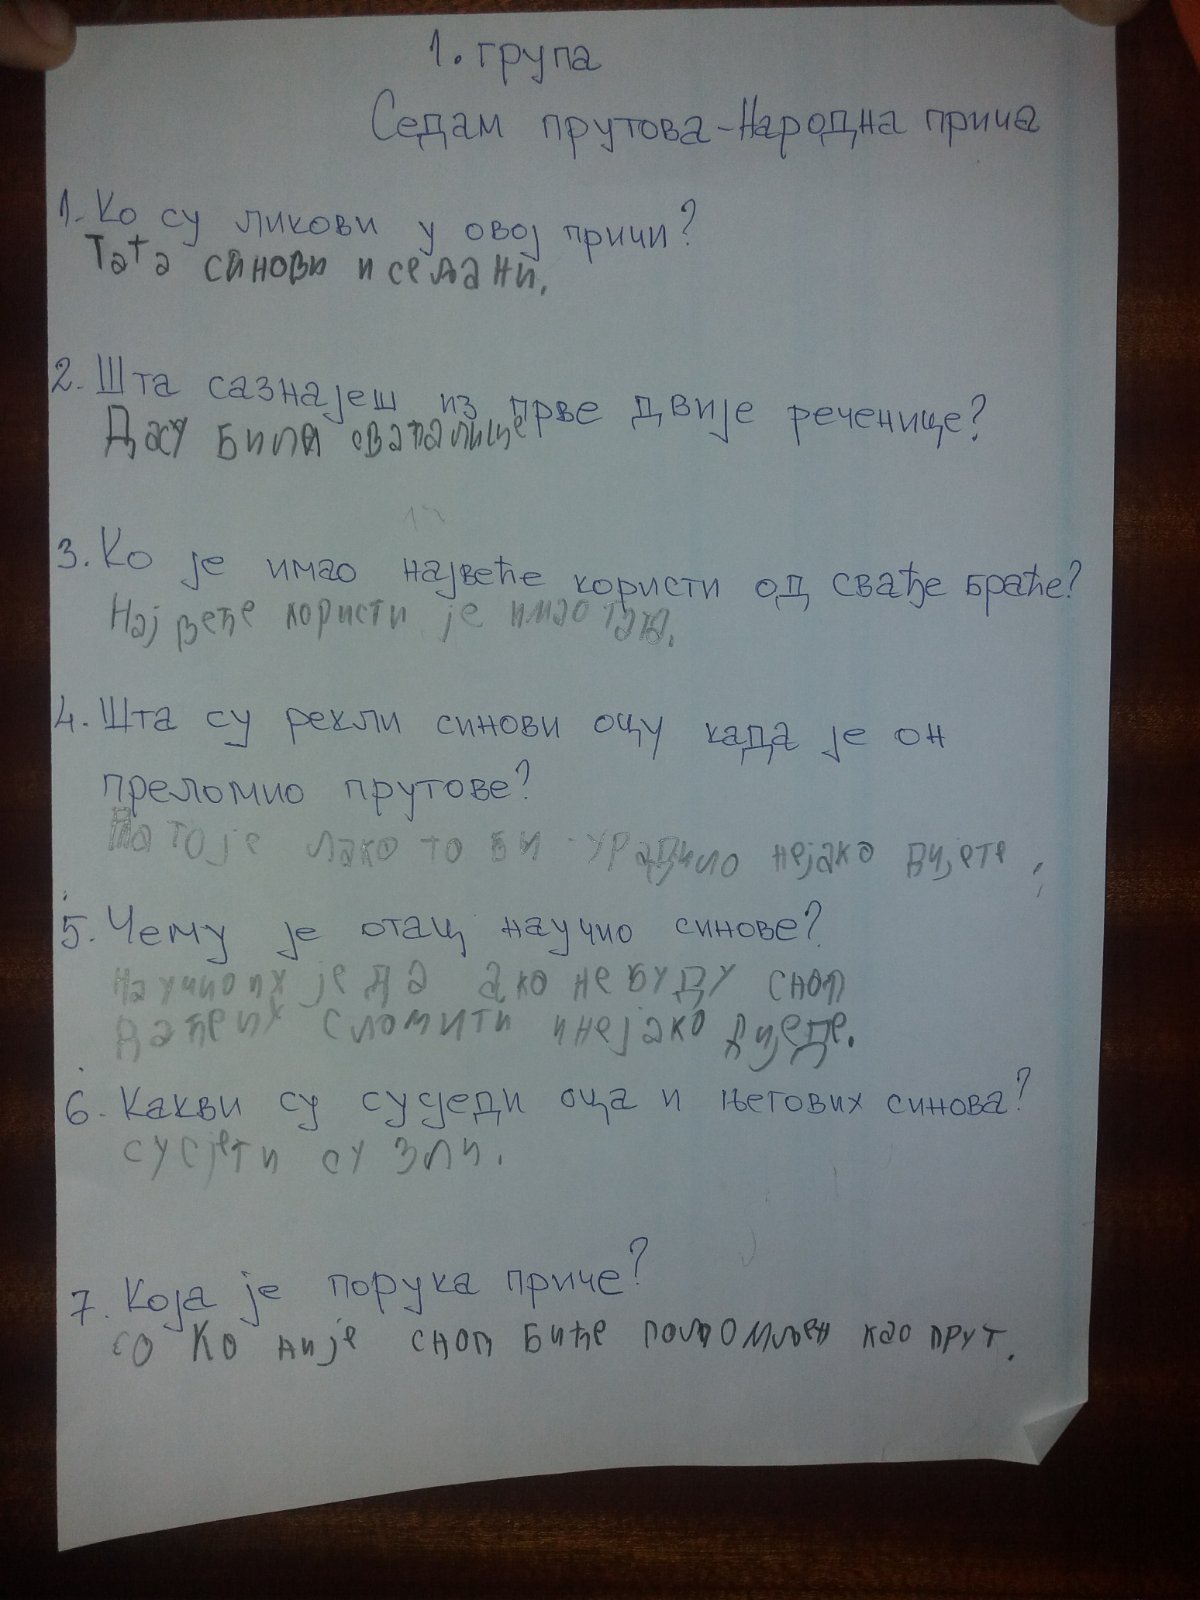 1. група
Седам прутова - Народна прича
1. Ко су ликови у овој причи?
Тата синови и сељани.
2. Шта сазнајеш из прве двије реченице?
Да су били свађалице
3. Ко је имао највеће користи од свађе браће?
Највеће користи је имао тата.
4. Шта су рекли синови оцу када је он
преломио прутове?
Па то је лако то би урадило нејако дијете
5. Чему је отац научио синове?
Научио их је да ако не буду сноп
да ће их сломити и нејако диједе.
6. Какви су сусједи оца и његових синова?
сусјети су зли.
7. Која је порука приче?
Ко није сноп биће поломљен као прут.